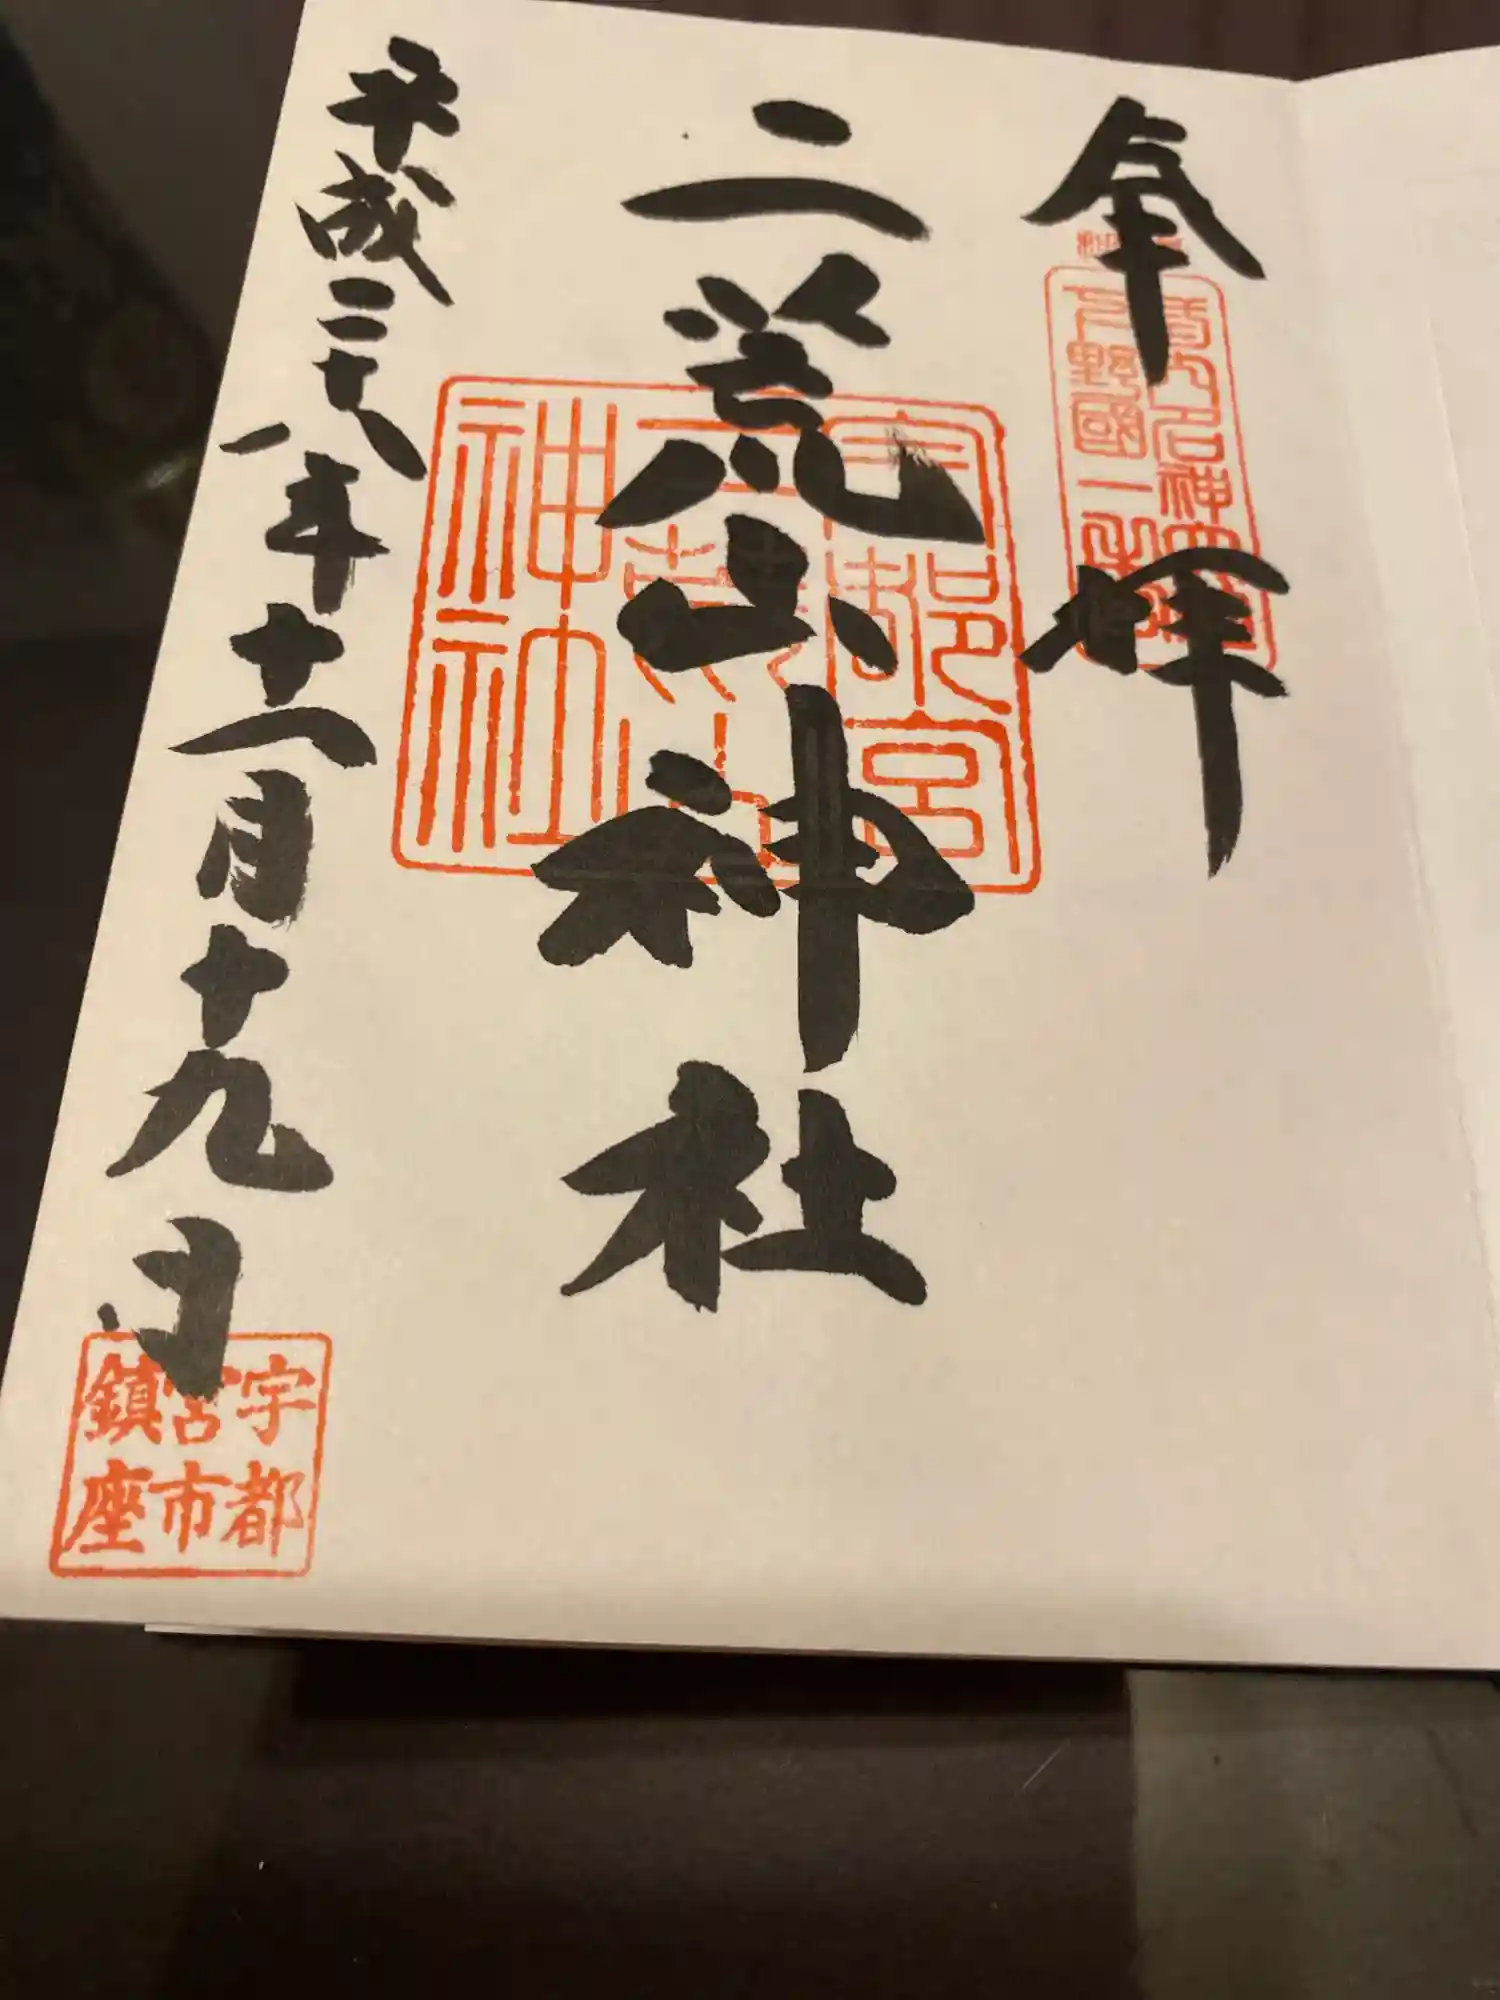 奉拝
下野國一之宮
二荒山神社
宇都宮
二荒山
神社
平成二十八年十一月十九日
宇都
宮市
鎮座